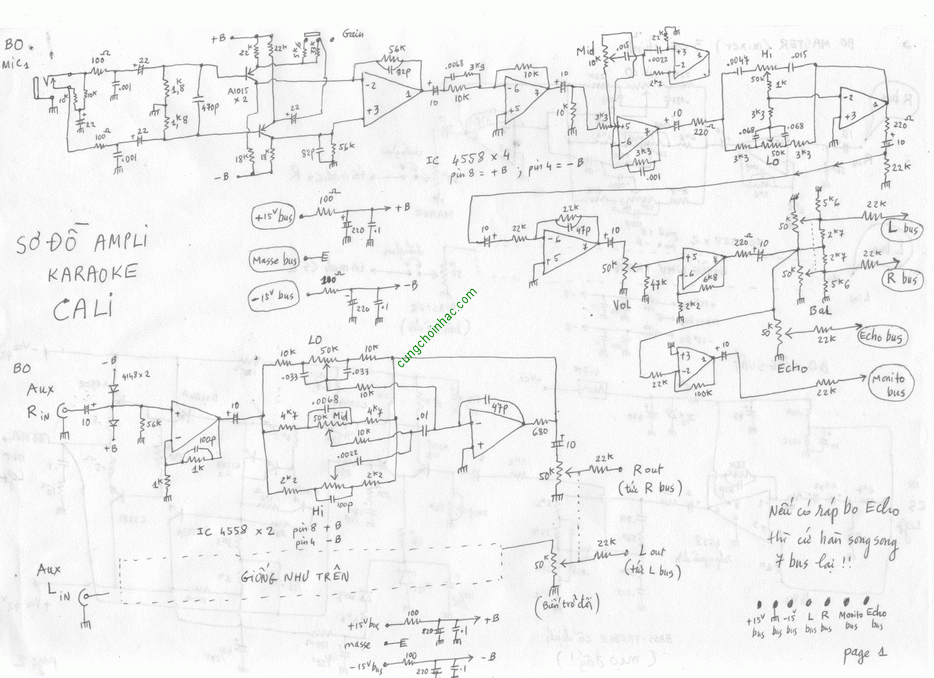 BO
MIC 1
+B
Gain
100Ω
22
.001
10K
10K
22
100Ω
.001
22
1K8
470p
A1015
x 2
22K
22K
18K
18K
-B
82p
56K
56K
82p
-2
+3
1
10
.0068
3K3
10K
10K
-6
+5
7
10
10K
IC 4558 x 4
pin 8 = +B ; pin 4 = -B
Mid
10K
.015
22K
.0022
2K2
+3
-2
1
3K3
+5
-6
7
3K3
.001
10
220Ω
.0047
Hi
.015
50K
1K
3K3
.068
.068
50K
3K3
LO
3K3
-2
+3
1
220Ω
10
22K
+15V bus
100Ω
+B
220
.1
Masse bus
E
-15V bus
100
-B
220
.1
SƠ ĐỒ AMPLI
KARAOKE
CALI
10
22K
22K
47p
-6
+5
7
10
50K
Vol
47K
+5
-6
7
6K8
2K2
220Ω
10
50K
50K
5K6
2K7
2K7
5K6
Bal
22K
L bus
22K
R bus
50K
Echo
22K
Echo bus
22K
+3
-2
1
100K
10
22K
Monito
bus
cungchoinhac.com
BO
Aux
R IN
10
-B
4148 x 2
+B
56K
+
-
100p
1K
1K
10
LO
10K
50K
10K
.033
.033
10K
.0068
4K7
50K Mid
4K7
10K
.01
.0022
2K2
2K2
Hi
100p
47p
-
+
680
10
50K
22K
R out
(tức R bus)
IC 4558 x 2
pin 8 +B
pin 4 -B
Aux
L IN
GIỐNG NHƯ TRÊN
50K
22K
L out
(tức L bus)
(Biến trở đôi)
+15V bus
100
+B
220
.1
masse
E
-15V bus
100
-B
220
.1
Nếu có ráp bo Echo
thì cứ hàn song song
7 bus lại !!
+15V bus
-15 bus
L bus
R bus
Monito bus
Echo bus
page 1